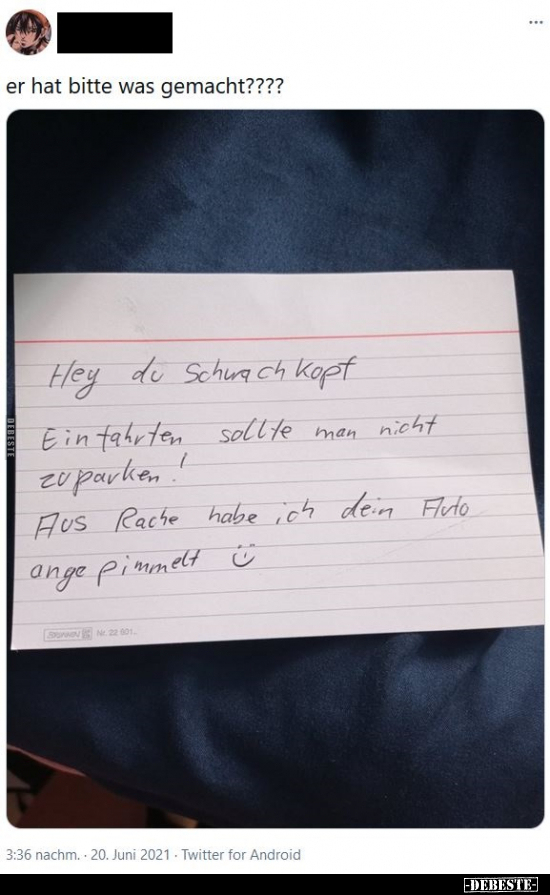 er hat bitte was gemacht????
Hey du Schwachkopf
Einfahrten sollte man nicht
zuparken!
Aus Rache habe ich dein Auto
angepimmelt ☺
Nr. 22 901
DEBESTE
3:36 nachm. · 20. Juni 2021 · Twitter for Android
-DEBESTE-